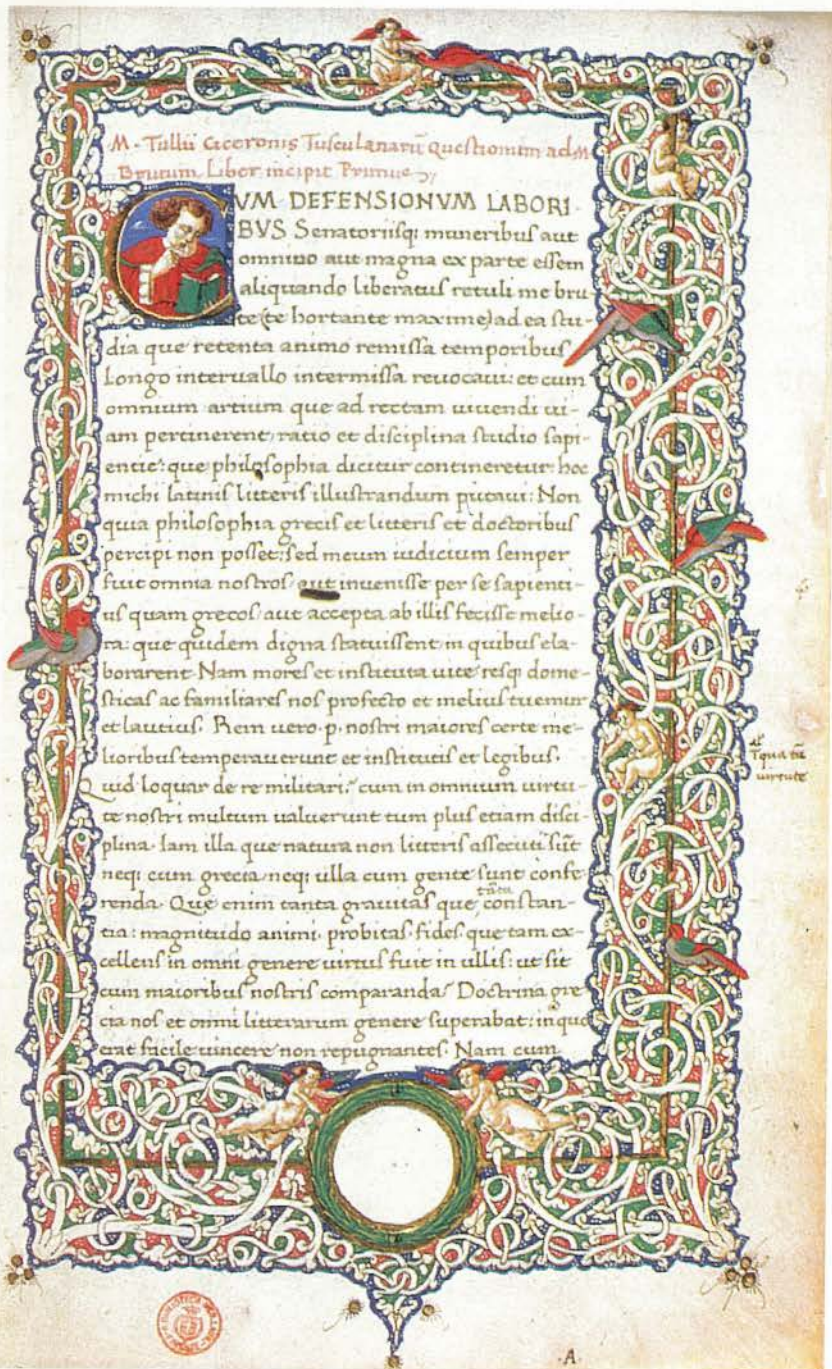 M. Tullii Ciceronis Tusculanarū Questionum ad M
Brutum Liber incipit Primus
CVM DEFENSIONVM LABORI
BVS Senatoriisq; muneribus aut
omnino aut magna ex parte essem
aliquando liberatus retuli me bru
te (te hortante maxime) ad ea stu-
dia que retenta animo remissa temporibus
Longo interuallo intermissa reuocaui: et cum
omnium artium que ad rectam uiuendi ui-
am pertinerent ratio et disciplina studio sapi-
entie: que philosophia dicitur contineretur: hoc
michi latinis litteris illustrandum putaui: Non
quia philosophia grecis et litteris et doctoribus
percipi non posset: sed meum iudicium semper
fuit omnia nostros aut inuenisse per se sapienti-
us quam grecos/ aut accepta ab illis fecisse melio-
ra: que quidem digna statuissent in quibus ela-
borarent. Nam mores et instituta uite resq; dome-
sticas ac familiares nos profecto et melius tuemur
et lautius. Rem uero .p. nostri maiores certe me-
lioribus temperauerunt et institutis et legibus.
Quid loquar de re militari? cum in omnium uirtu-
te nostri multum ualuerunt tum plus etiam disci-
plina. Iam illa que natura non litteris assecuti sūt
neq; cum grecia neq; ulla cum gente sunt confe
renda. Que enim tanta grauitas que tāta constan-
tia: magnitudo animi. probitas. fides. que tam ex-
cellens in omni genere uirtus fuit in ullis: ut sit
cum maioribus nostris comparanda? Doctrina gre
cia nos et omni litterarum genere superabat: in quo
erat facile uincere non repugnantes. Nam cum
uirtute
.A.